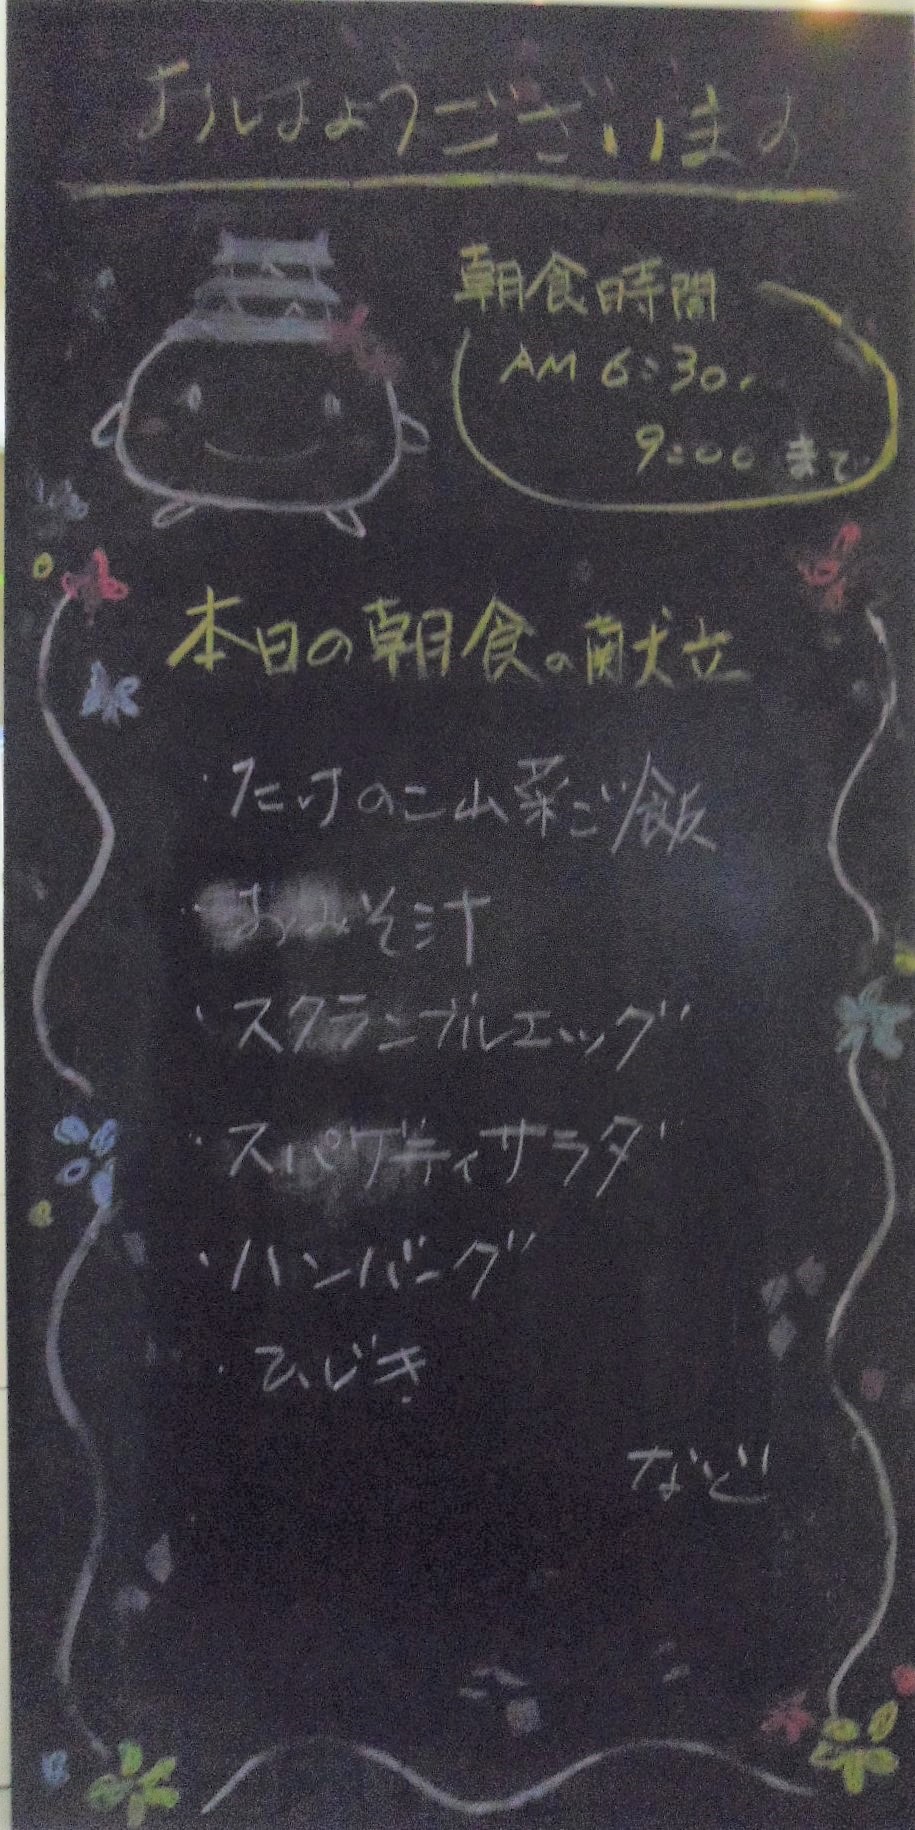 おはようございます
朝食時間
AM 6:30〜
9:00 まで
本日の朝食の献立
・たけのこ山菜ご飯
・おみそ汁
・スクランブルエッグ
・スパゲティサラダ
・ハンバーグ
・ひじき
など